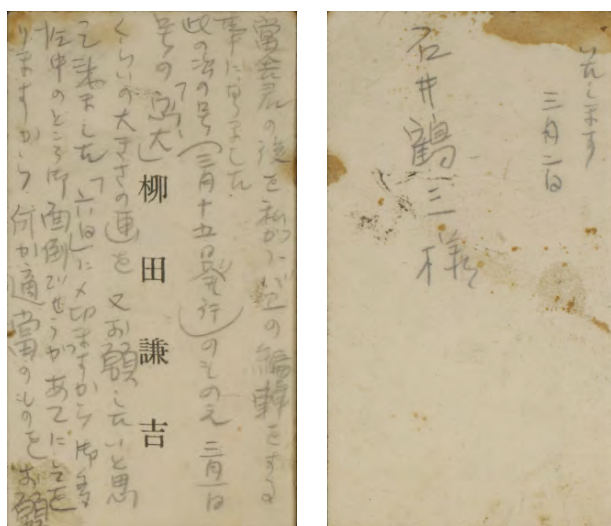 富倉君の後を私がつゞいての編輯をする
事になりました
此の次の号(三月十五日発行)のものえ 三月一日
号の「富大」
くらいの大きさの画を又お願したいと思
つて来ました「六日」に〆切ますから御多
忙中のところ御面倒でせうがあてにを
りますから何か適当のものをお願
柳田謙吉
いたします
三月二日
石井鶴三様